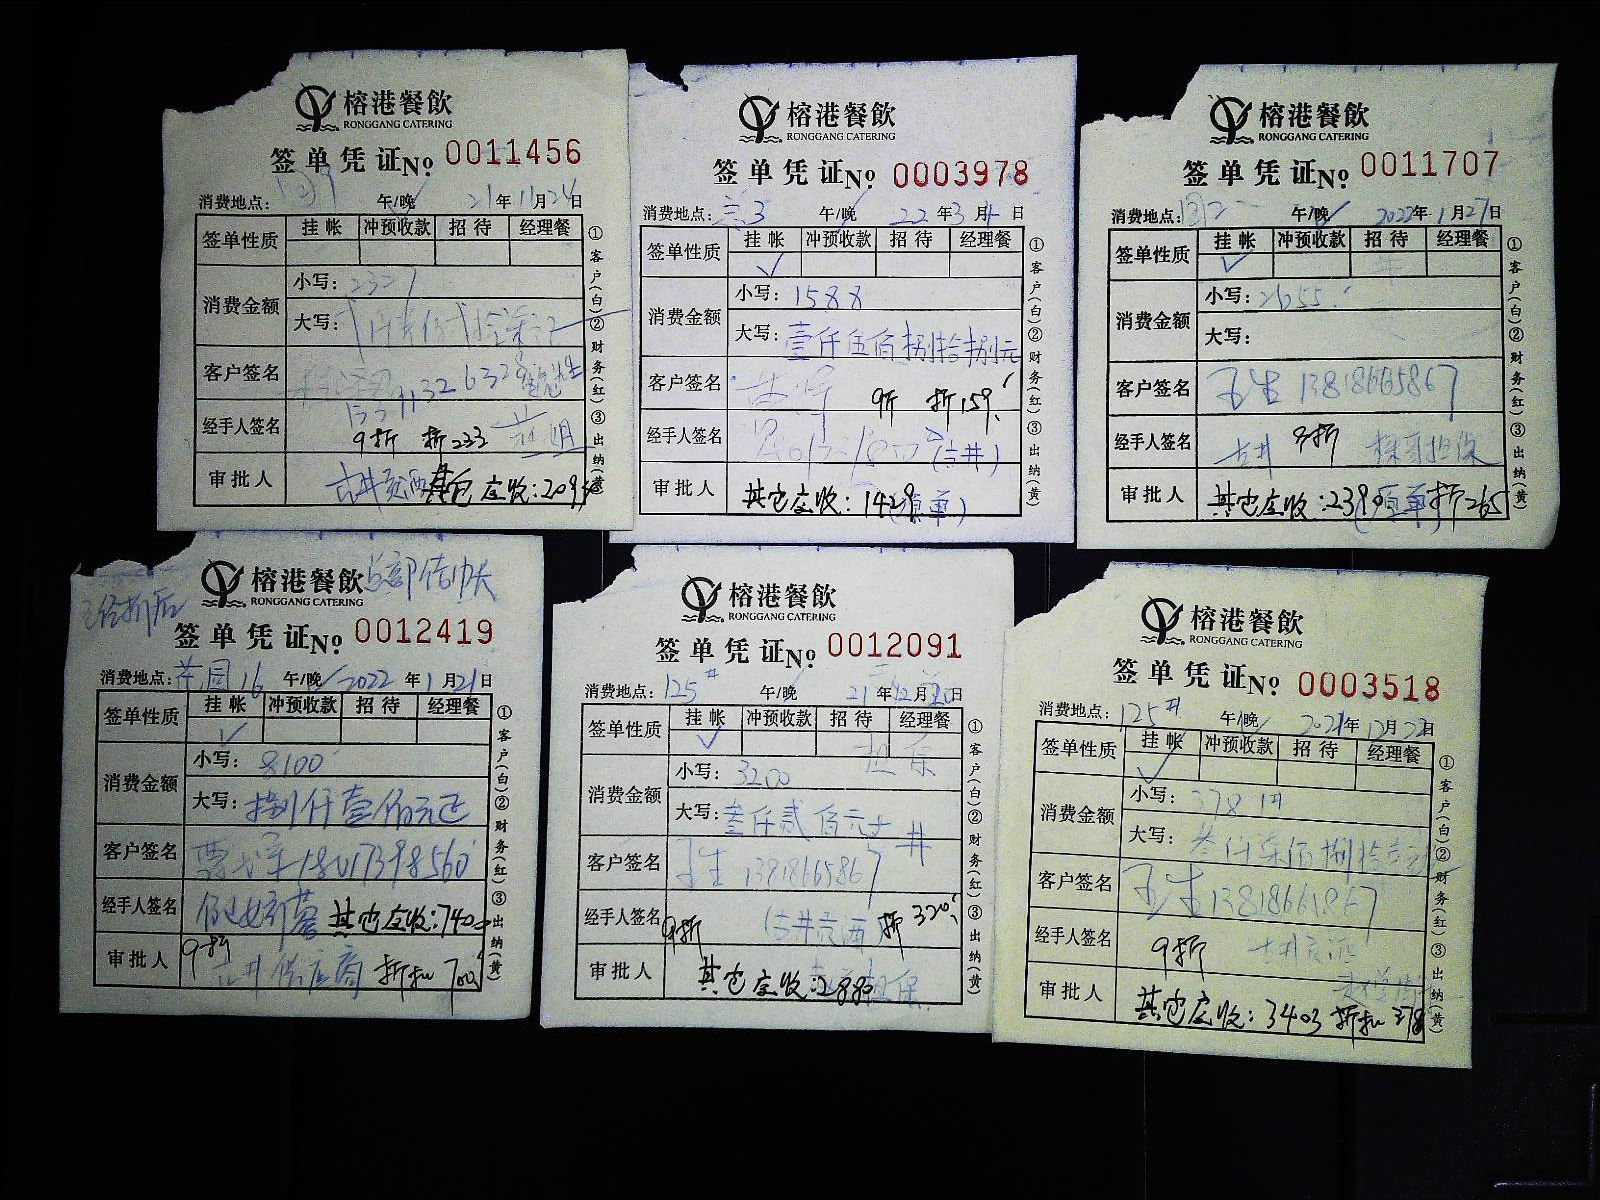 榕港餐飲
RONGGANG CATERING
签单凭证 No 0011456
消费地点: 午/晚 21年11月24日
签单性质 挂帐 冲预收款 招待 经理餐
消费金额 小写: 2327
大写:
客户签名
13391326328
经手人签名 9折 折233
审批人 其它应收:2094
①客户(白)②财务(红)③出纳(黄)
榕港餐飲
RONGGANG CATERING
签单凭证 No 0003978
消费地点: 3 午/晚 22年3月 日
签单性质 挂帐 冲预收款 招待 经理餐
✓
消费金额 小写: 1588
大写: 壹仟伍佰捌拾捌元
客户签名 9折 折159
经手人签名 (古井)
审批人 其它应收: 1429 (原单)
①客户(白)②财务(红)③出纳(黄)
榕港餐飲
RONGGANG CATERING
签单凭证 No 0011707
消费地点: 午/晚 2022年1月27日
签单性质 挂帐 冲预收款 招待 经理餐
✓
消费金额 小写: 2655
大写:
客户签名 王生 13818665867
经手人签名 古井 9折 担保
审批人 其它应收:2390 (原单) 折265
①客户(白)②财务(红)③出纳(黄)
已经折后
榕港餐飲
RONGGANG CATERING
签单凭证 No 0012419
消费地点: 16 午/晚 2022年1月21日
签单性质 挂帐 冲预收款 招待 经理餐
✓
消费金额 小写: 8100
大写: 捌仟壹佰元正
客户签名 18017398560
经手人签名 其它应收:7400
审批人 9折 古井供应商 折扣700
①客户(白)②财务(红)③出纳(黄)
榕港餐飲
RONGGANG CATERING
签单凭证 No 0012091
消费地点: 125# 午/晚 21年12月20日
签单性质 挂帐 冲预收款 招待 经理餐
✓ 担保
消费金额 小写: 3200
大写: 叁仟贰佰元
客户签名 王生 13818665867
经手人签名 9折 (古井贡酒) 折320
审批人 其它应收:2880 担保
①客户(白)②财务(红)③出纳(黄)
榕港餐飲
RONGGANG CATERING
签单凭证 No 0003518
消费地点: 125# 午/晚 2021年12月22日
签单性质 挂帐 冲预收款 招待 经理餐
✓
消费金额 小写: 3781
大写: 叁仟柒佰捌拾壹元
客户签名 王生 13818665867
经手人签名 9折 古井贡酒
审批人 其它应收: 3403 折扣 378
①客户(白)②财务(红)③出纳(黄)